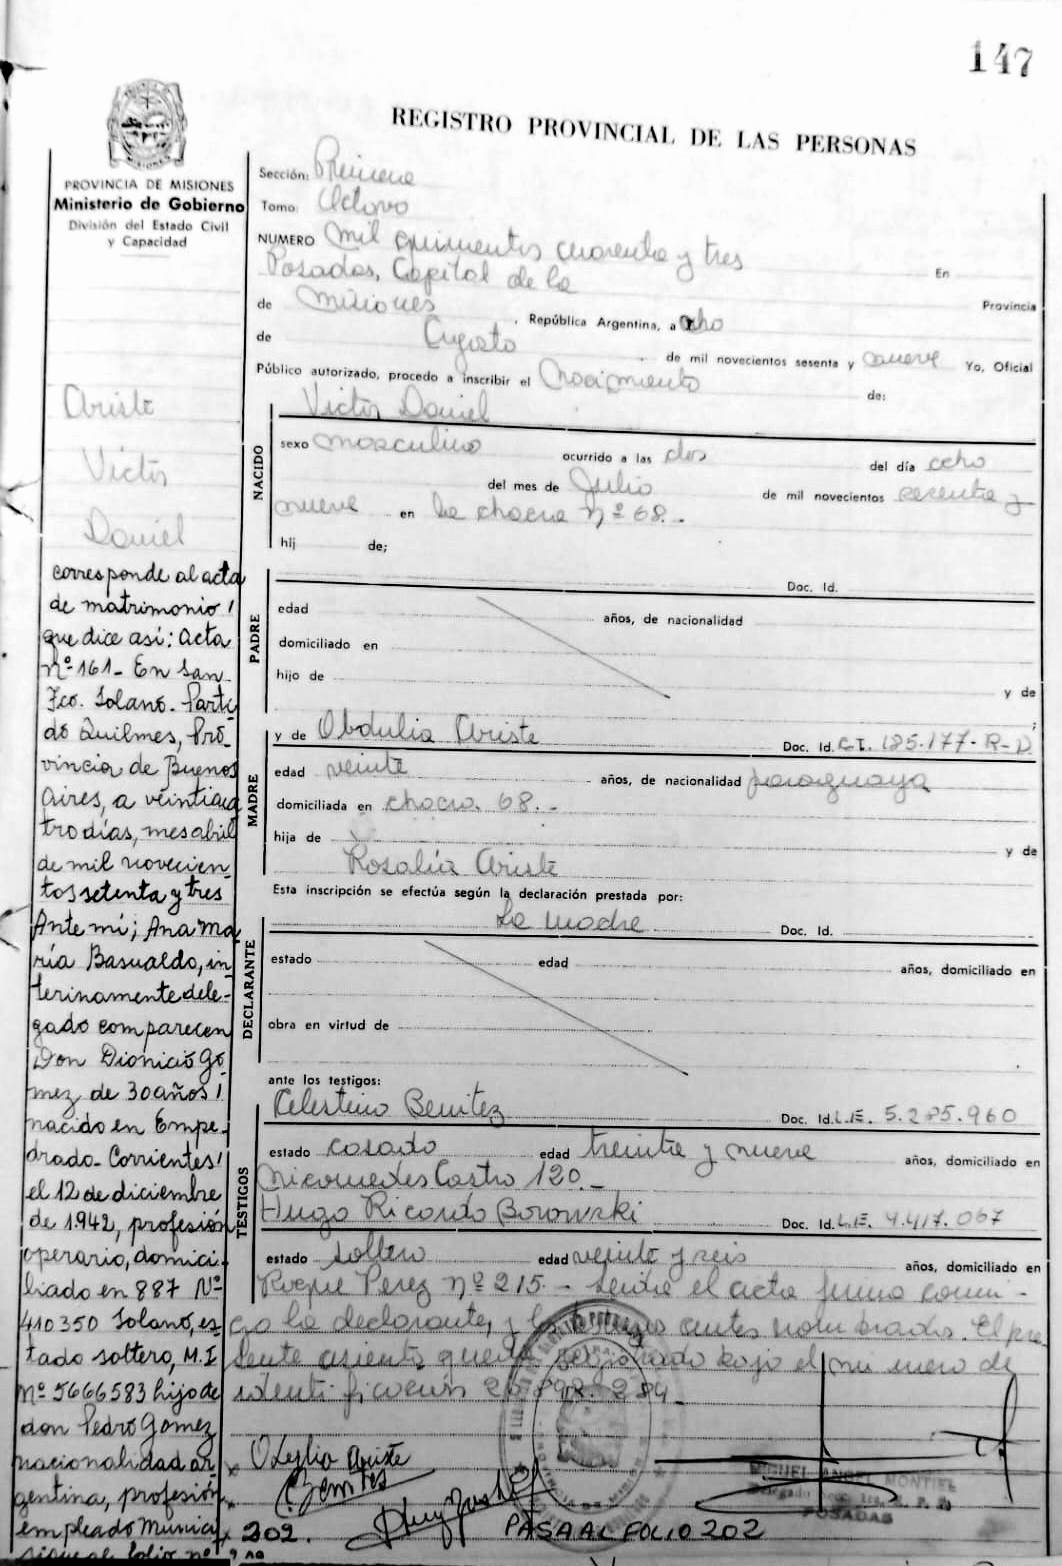 147
REGISTRO PROVINCIAL DE LAS PERSONAS
PROVINCIA DE MISIONES
Ministerio de Gobierno
División del Estado Civil
y Capacidad
Sección: Primera
Tomo: Octavo
NUMERO Mil quinientos cuarenta y tres En
Posadas, Capital de la Provincia
de Misiones, República Argentina, a ocho
de Agosto de mil novecientos sesenta y nueve Yo, Oficial
Público autorizado, procedo a inscribir el Nacimiento de:
Ariste
Victor
Daniel
NACIDO
Victor Daniel
sexo masculino ocurrido a las dos del día ocho
del mes de Julio de mil novecientos sesenta y
nueve en la chacra Nº 68.-
hij de;
PADRE
Doc. Id.
edad años, de nacionalidad
domiciliado en
hijo de y de
;
MADRE
y de Obdulia Ariste Doc. Id. C.I. 185.177-R-D
edad veinte años, de nacionalidad paraguaya
domiciliada en chacra 68.-
hija de y de
Rosalía Ariste
Esta inscripción se efectúa según la declaración prestada por:
DECLARANTE
La madre Doc. Id.
estado edad años, domiciliado en
obra en virtud de
ante los testigos:
TESTIGOS
Celestino Benitez Doc. Id. L.E. 5.285.960
estado casado edad treinta y nueve años, domiciliado en
Nicomedes Castro 120.-
Hugo Ricardo Borowski Doc. Id. L.E. 4.417.067
estado soltero edad veinte y seis años, domiciliado en
Roque Perez nº 215.- Leída el acta firma conmi-
go la declarante, y los testigos antes nombrados. El pre
sente asiento queda registrado bajo el número de
identificación
corresponde al acta
de matrimonio
que dice así: Acta
Nº 161- En San
Fco. Solano- Parti
do Quilmes, Pro-
vincia de Buenos
Aires, a veinticua
tro días, mes abril
de mil novecien-
tos setenta y tres
Ante mí; Ana Ma
ría Basualdo, in-
terinamente dele-
gado comparecen
Don Dionicio Go
mez de 30 años
nacido en Empe-
drado- Corrientes
el 12 de diciembre
de 1942, profesión
operario, domici-
liado en 887 Nº
410 350 Solano, es-
tado soltero, M.I
Nº 5666583 hijo de
don Pedro Gomez
nacionalidad ar-
gentina, profesión
empleado Munici
sigue al folio nº
Ariste
Benites
MIGUEL ANGEL MONTIEL
POSADAS
202. PASA AL FOLIO 202